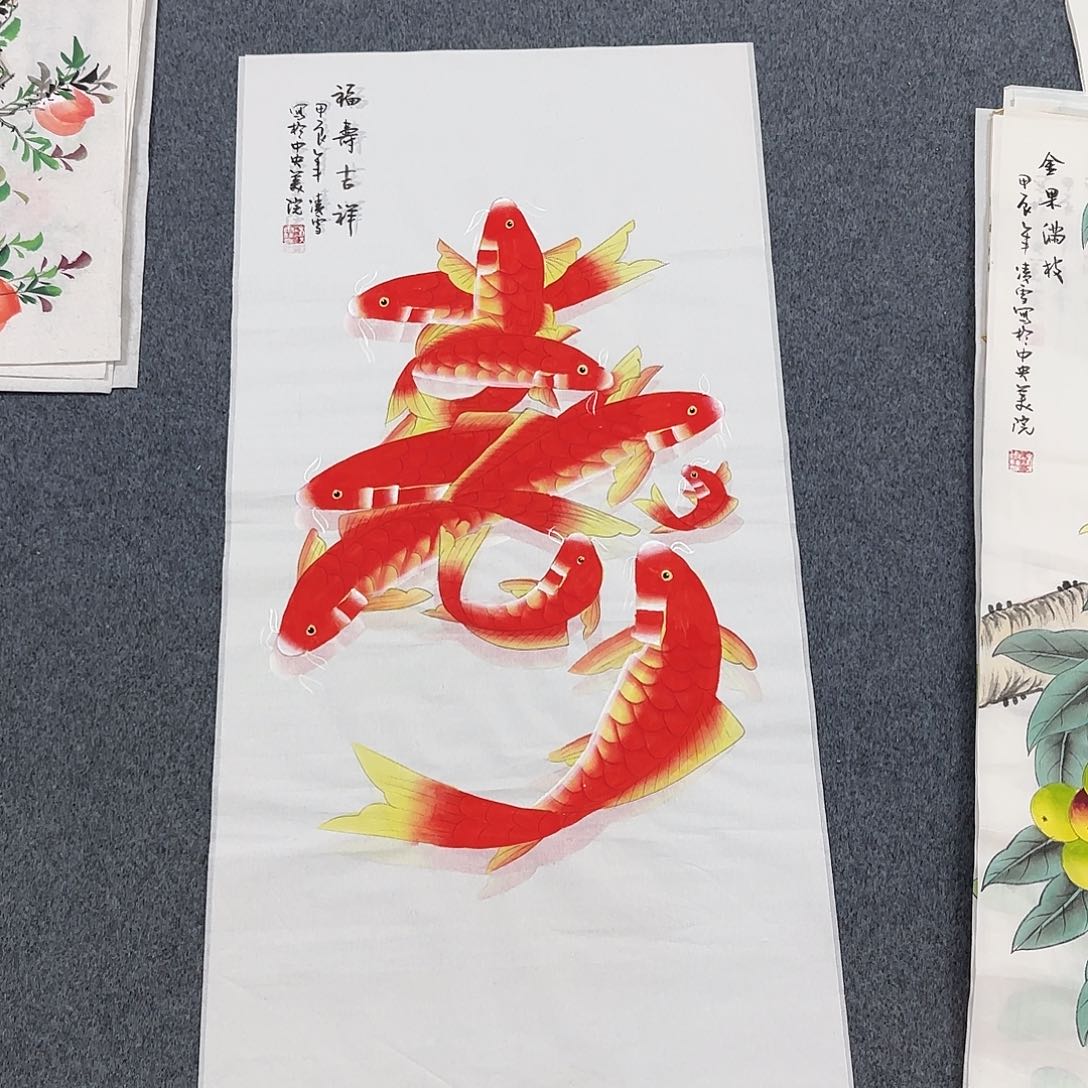 福寿吉祥
甲辰年 凌雪
写於中央美院
金果满枝
甲辰年凌雪写於中央美院